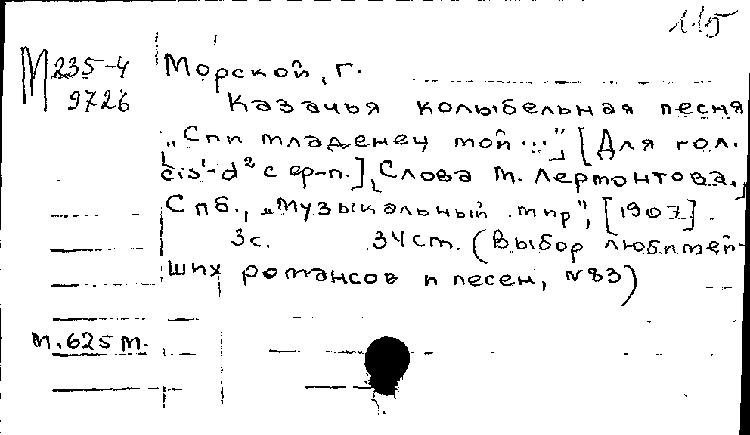 115
М 235-4
9726
Морской, Г.
Казачья колыбельная песня
„Спи младенец мой...", [Для гол.
cis¹-d² с ф-п.], Слова М. Лермонтова.
Спб., „Музыкальный мир", [1907].
3с. 34см. (Выбор любимей-
ших романсов и песен, №83)
м. 625 м.